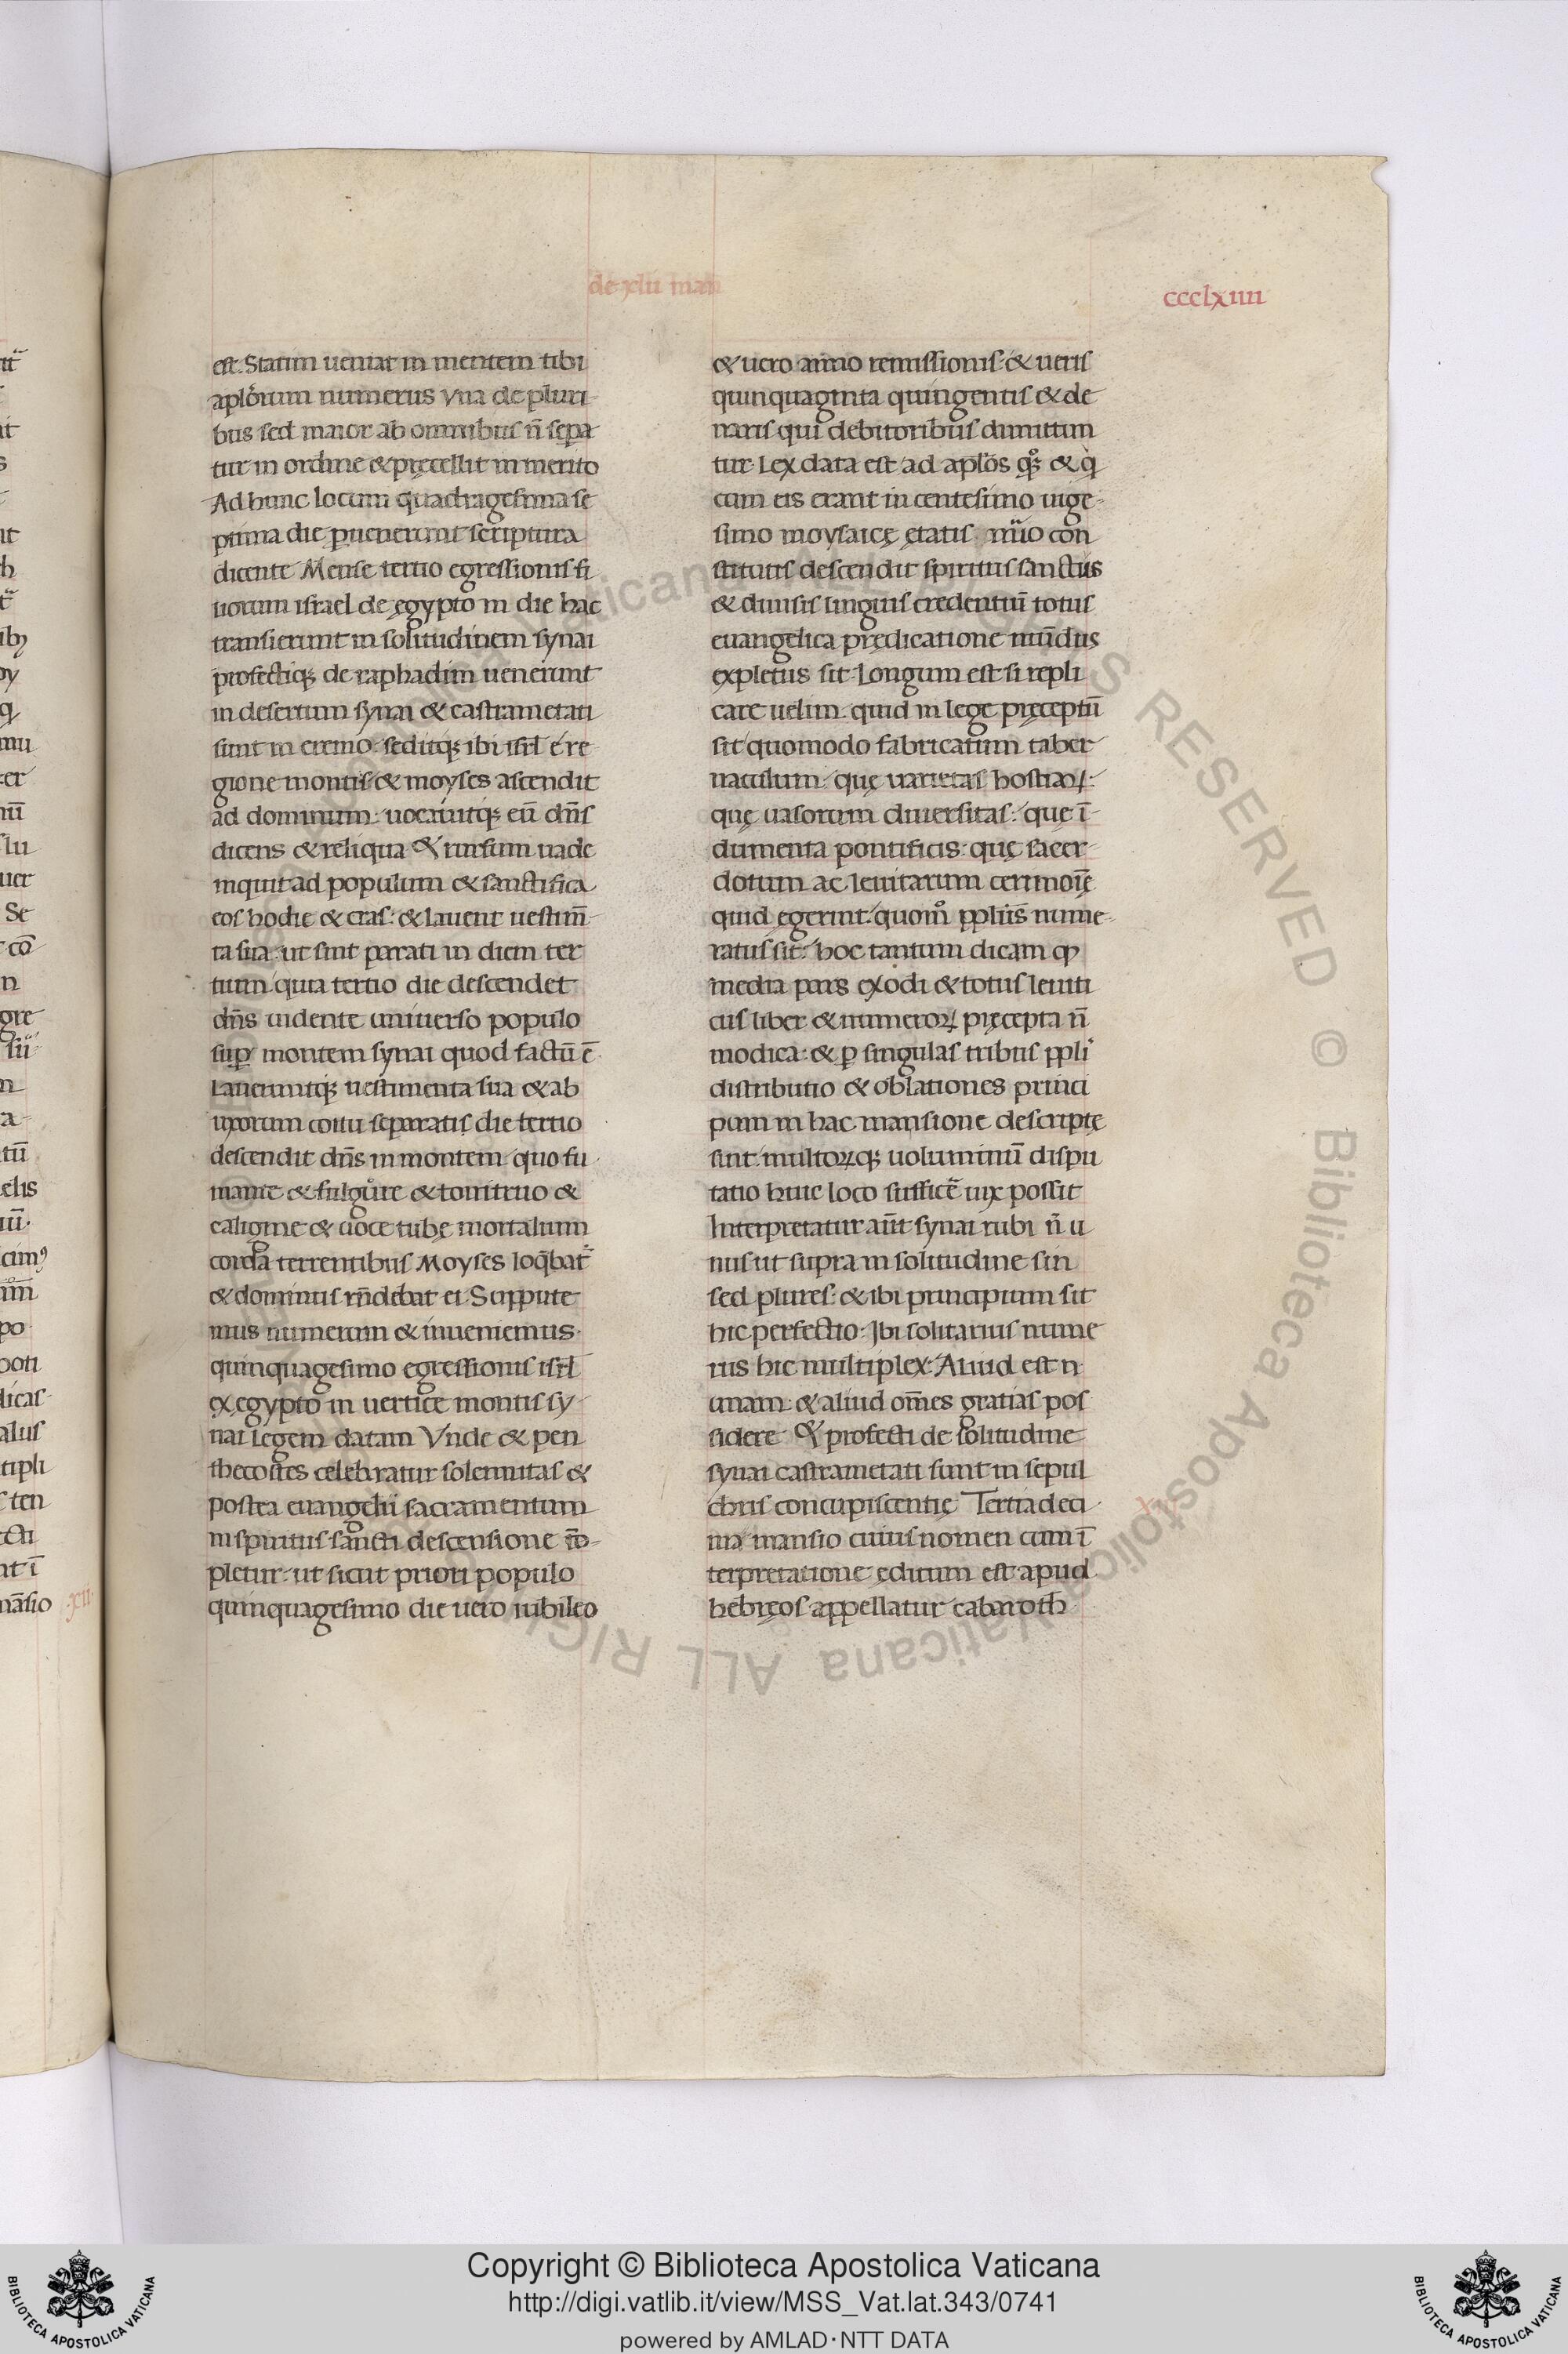 de xlii man
ccclxiiii
est. Statim ueniat in mentem tibi
aplõrum numerus Vna de pluri-
bus sed maior ab omnibus ñ sepa
tur in ordine & pręcellit in merito
Ad hunc locum quadragesima se
ptima die puenerunt scriptura
dicente Mense tertio egressionis fi
liorum israel de ęgypto in die hac
transierunt in solitudinem synai
profectiq; de raphadim uenerunt
in desertum synai & castrametati
sunt in eremo. seditq; ibi isrl é re
gione montis & moyses ascendit
ad dominum. uocauitq; eũ dñs
dicens & reliqua & rursum uade
inquit ad populum & sanctifica
eos hodie & cras. & lauent uestim̃-
ta sua. ut sint parati in diem ter
tium. quia tertio die descendet
dñs uidente uniuerso populo
sup montem synai quod factũ ẽ.
Laueruntq; uestimenta sua & ab
uxorum coitu separatis die tertio
descendit dñs in montem quo fu
mante & fulgure & tonitruo &
caligine & uoce tubę mortalium
corda terrentibus Moyses loq̃bat᷑
& dominus rñdebat ei Suppute
mus numerum & inueniemus.
quinquagesimo egressionis isrl
ex ęgypto in uertice montis sy-
nai legem datam Vnde & pen
thecostes celebratur solemnitas &
postea euangelii sacramentum
in spiritus sancti descensione cõ-
pletur. ut sicut priori populo
quinquagesimo die uero iubileo
& uero anno remissionis. & ueris
quinquaginta quingentis & de
nariis qui debitoribus dimittun
tur. Lex data est ad aplõs q̊s & q̇
cum eis erant in centesimo uige-
simo moysaicę ętatis. nũio con
stitutis descendit spiritus sanctus
& diuisis linguis credentiũ totus
euangelica prędicatione mũdus
expletus sit. Longum est si repli
care uelim. quid in lege pręceptũ
sit quomodo fabricatum taber
naculum. quę uarietas hostiaꝝ.
quę uasorum diuersitas. quę ĩ-
dumenta pontificis. quę sacer-
dotum ac leuitarum cerimoĩę
quid egerint. quom̊ pplũs nume-
ratus sit. hoc tantum dicam ꝙ
media pars exodi & totus leuiti
cus liber & numeroꝝ pręcepta ñ
modica. & p singulas tribus ppli
distributio & oblationes princi
pum in hac mansione descriptę
sint. multoꝝq; uoluminũ dispu
tatio huic loco sufficẽ uix possit
Interpretatur aũt synai rubi ñ u
nus ut supra in solitudine sin
sed plures. & ibi principium sit
hic perfectio. Ibi solitarius nume
rus hic multiplex. Aliud est n.
unam. & aliud om̃es gratias pos
sidere & profecti de solitudine
synai castrametati sunt in sepul
chris concupiscentię Tertia deci
ma mansio cuius nomen cum ĩ
terpretatione ęditum est apud
hebręos appellatur cabaroth